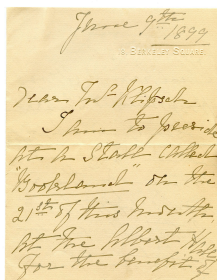 June 9th
1899
18 BERKELEY SQUARE.
Dear Mr Klipsch
I am to preside
at a Stall called
"Bookland" on the
21st of this month
at the Albert Hall
for the benefit of